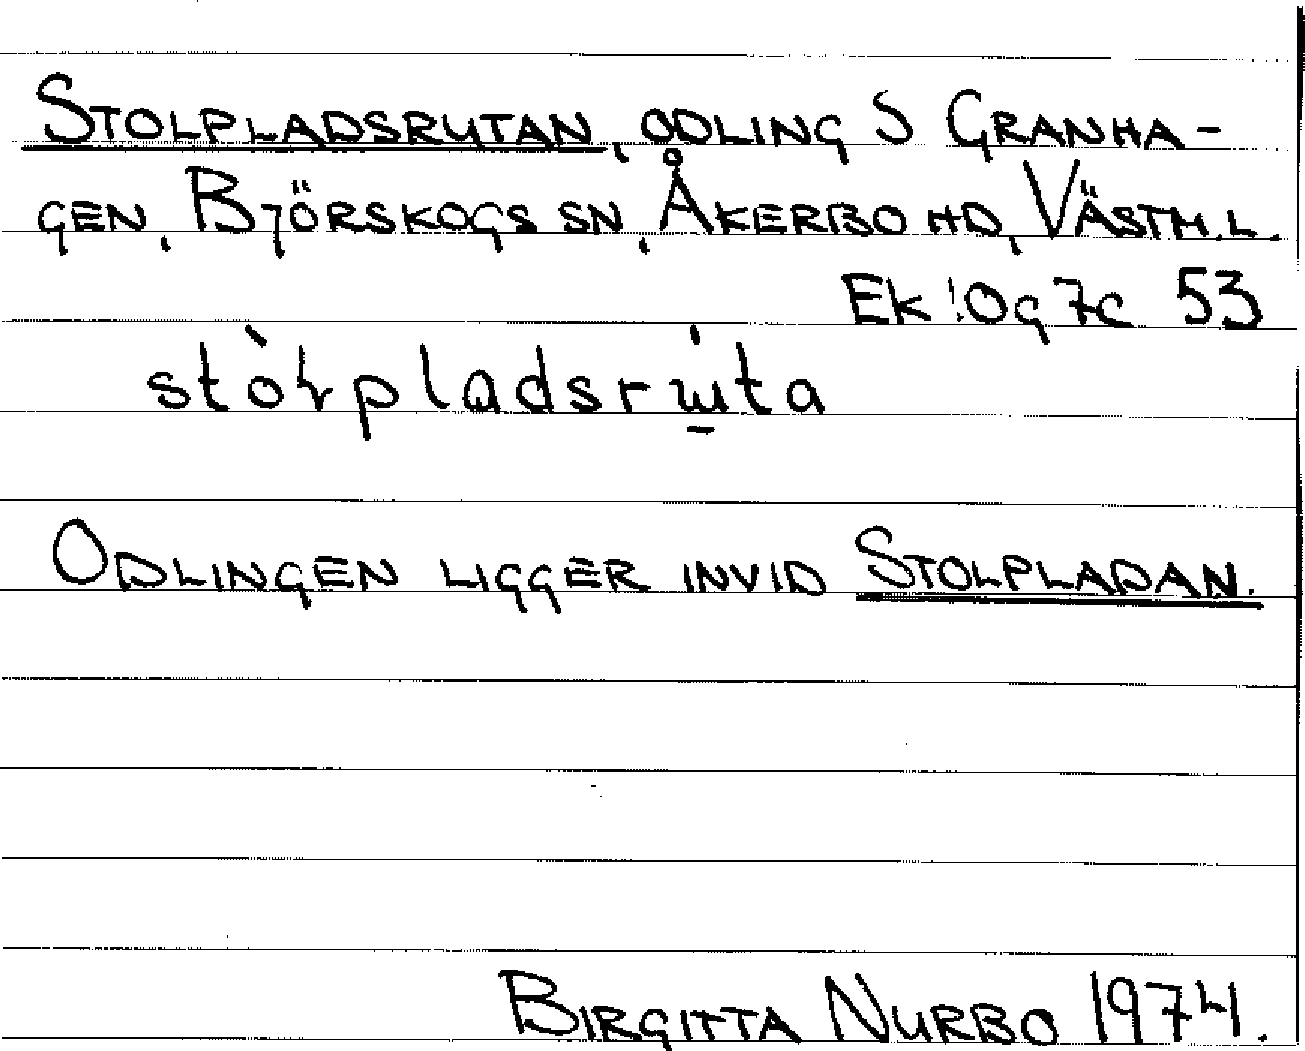 STOLPLADSRUTAN, ODLING S GRANHA-
GEN, BJÖRSKOGS SN, ÅKERBO HD, VÄSTM.L.
EK 10g 7c 53
stòɽpladsrɯ̲́ta
ODLINGEN LIGGER INVID STOLPLADAN.
BIRGITTA NURBO 1974.